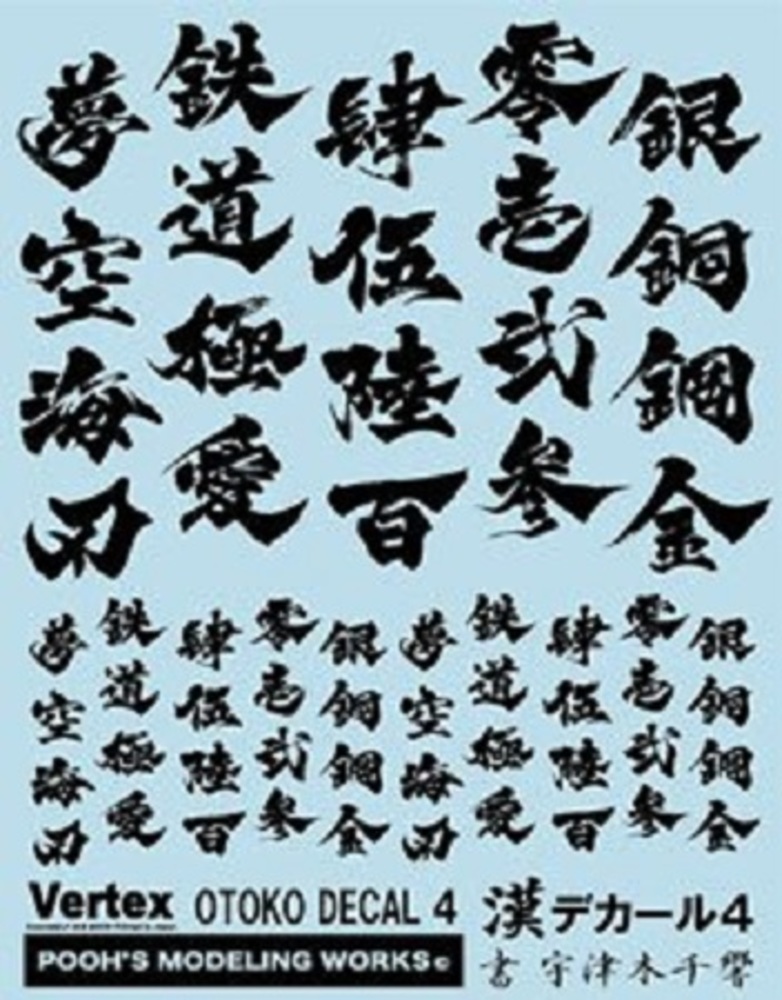 銀銅鋼金
零壱弐参
肆伍陸百
鉄道極愛
夢空海
銀銅鋼金
零壱弐参
肆伍陸百
鉄道極愛
夢空海
銀銅鋼金
零壱弐参
肆伍陸百
鉄道極愛
夢空海
Vertex OTOKO DECAL 4
漢デカール4
POOH'S MODELING WORKS©
書 宇津木千響